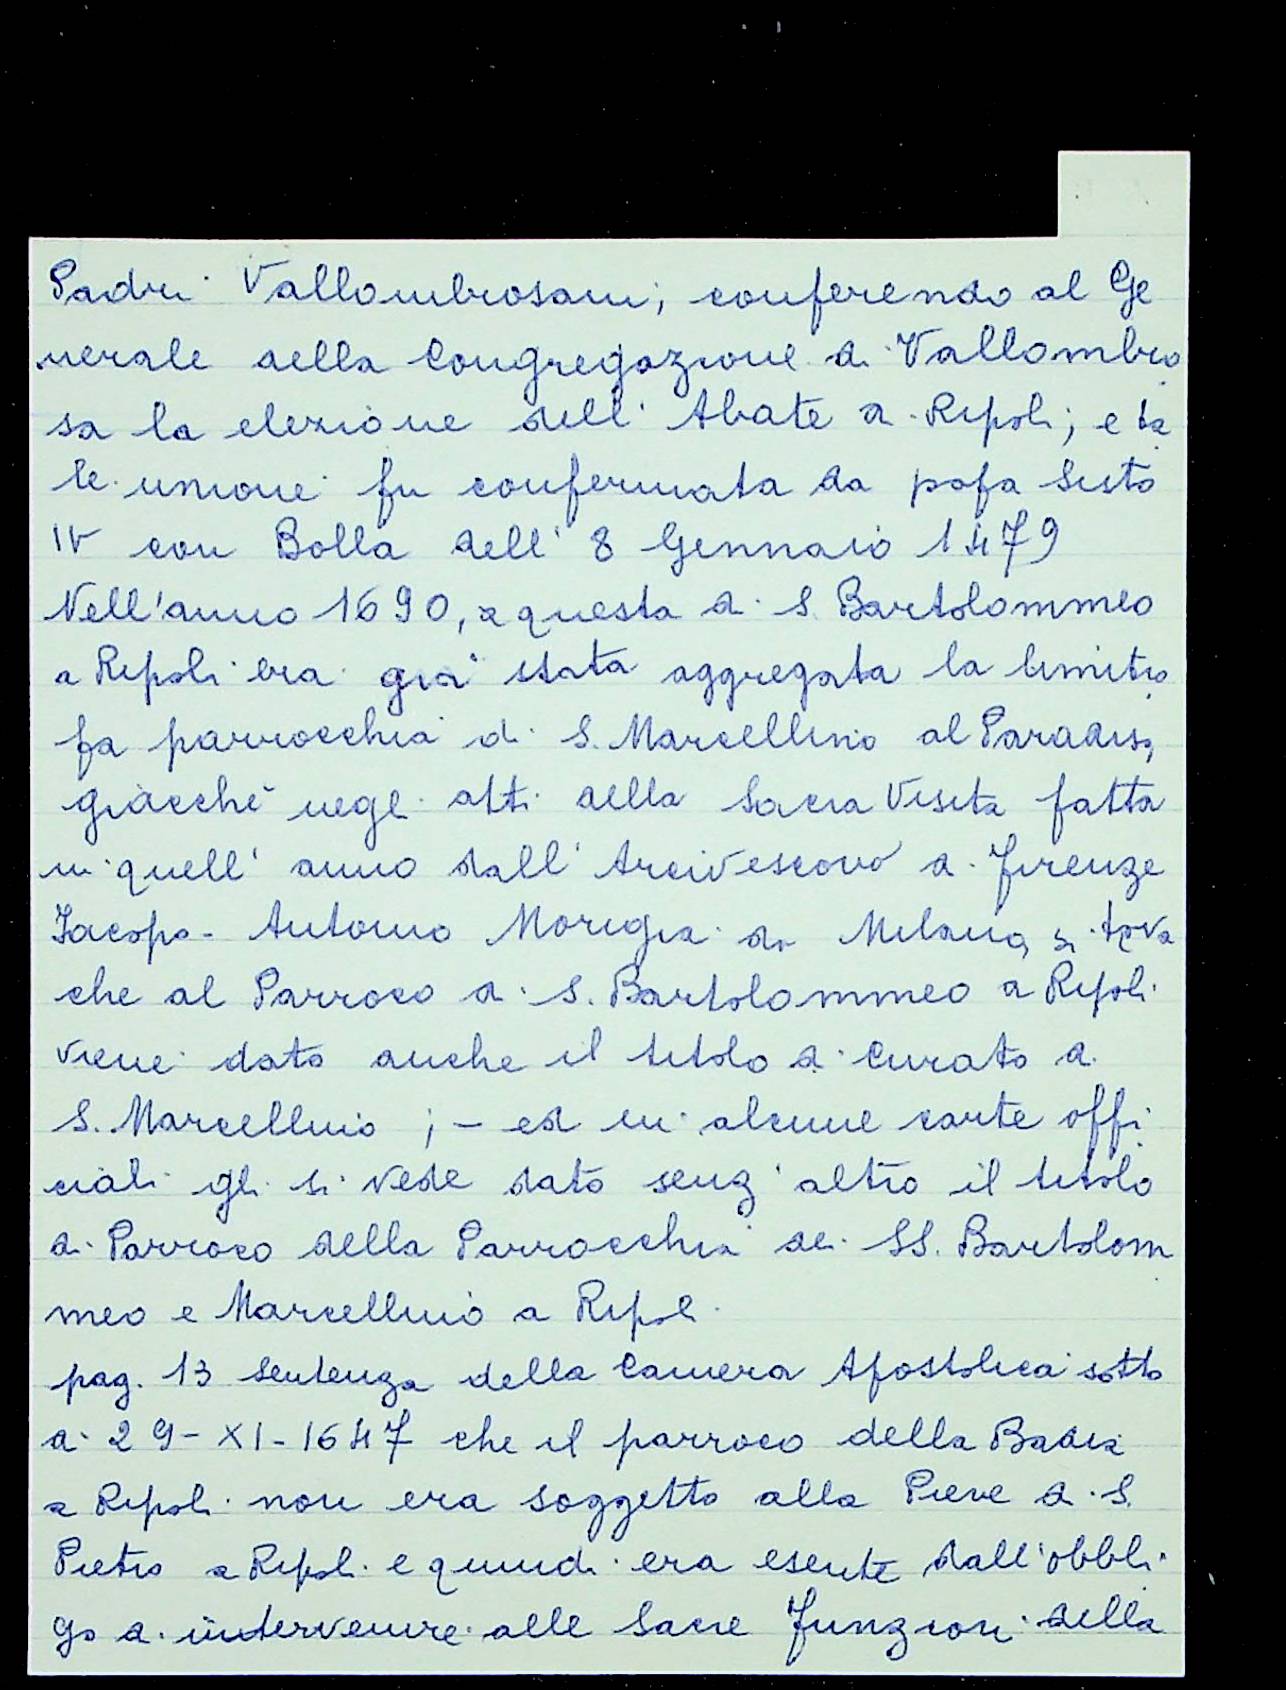 Padri Vallombrosani; conferendo al Ge
nerale della Congregazione di Vallombro
sa la elezione dell' Abate di Ripoli; e ta
le unione fu confermata da papa Sisto
IV con Bolla dell' 8 Gennaio 1479
Nell'anno 1690, a questa di S. Bartolommeo
a Ripoli era già stata aggregata la limitro
fa parrocchia di S. Marcellino al Paradiso,
giacchè negli atti della Sacra Visita fatta
in quell' anno dall' Arcivescovo di Firenze
Jacopo-Antonio Morigia di Milano, si trova
che al Parroco di S. Bartolommeo a Ripoli
viene dato anche il titolo di Curato di
S. Marcellino ; - ed in alcune carte offi
ciali gli si vede dato senz' altro il titolo
di Parroco della Parrocchia dei SS. Bartolom
meo e Marcellino a Ripoli
pag. 13 Sentenza della Camera Apostolica sotto
di 29-XI-1647 che il parroco della Badia
a Ripoli non era soggetto alla Pieve di S.
Pietro a Ripoli e quindi era esente dall'obbli
go di intervenire alle Sacre Funzioni della